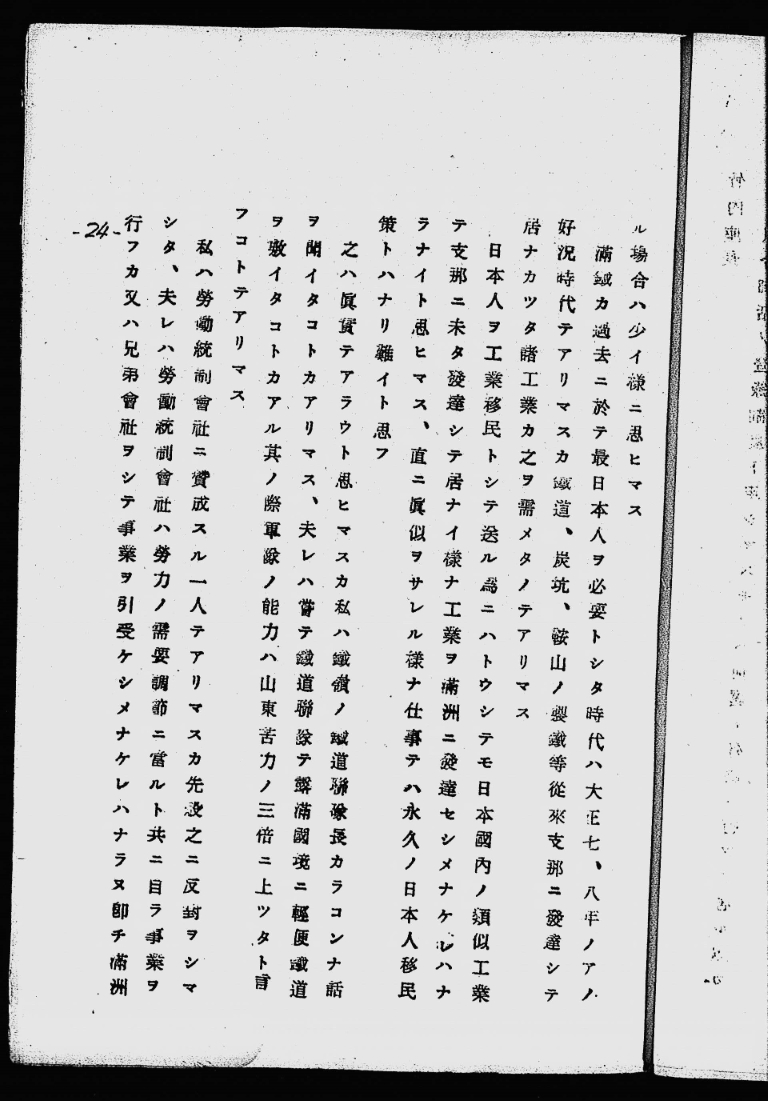 ル場合ハ少イ様ニ思ヒマス
滿鐵カ過去ニ於テ最日本人ヲ必要トシタ時代ハ大正七、八年ノアノ
好況時代テアリマスカ鐵道、炭坑、鞍山ノ製鐵等從來支那ニ發達シテ
居ナカツタ諸工業カ之ヲ需メタノテアリマス
日本人ヲ工業移民トシテ送ル爲ニハトウシテモ日本國內ノ類似工業
テ支那ニ未タ發達シテ居ナイ樣ナ工業ヲ滿洲ニ發達セシメナケレハナ
ラナイト思ヒマス、直ニ眞似ヲサレル樣ナ仕事テハ永久ノ日本人移民
策トハナリ難イト思フ
之ハ眞實テアラウト思ヒマスカ私ハ鐵嶺ノ鐵道聯隊長カラコンナ話
ヲ聞イタコトカアリマス、夫レハ嘗テ鐵道聯隊テ露滿國境ニ輕便鐵道
ヲ敷イタコトカアル其ノ際軍隊ノ能力ハ山東苦力ノ三倍ニ上ツタト言
フコトテアリマス
私ハ勞働統制會社ニ賛成スル一人テアリマスカ先般之ニ反對ヲシマ
シタ、夫レハ勞働統制會社ハ勞力ノ需要調節ニ當ルト共ニ自ラ事業ヲ
行フカ又ハ兄弟會社ヲシテ事業ヲ引受ケシメナケレハナラヌ卽チ滿洲
-24-